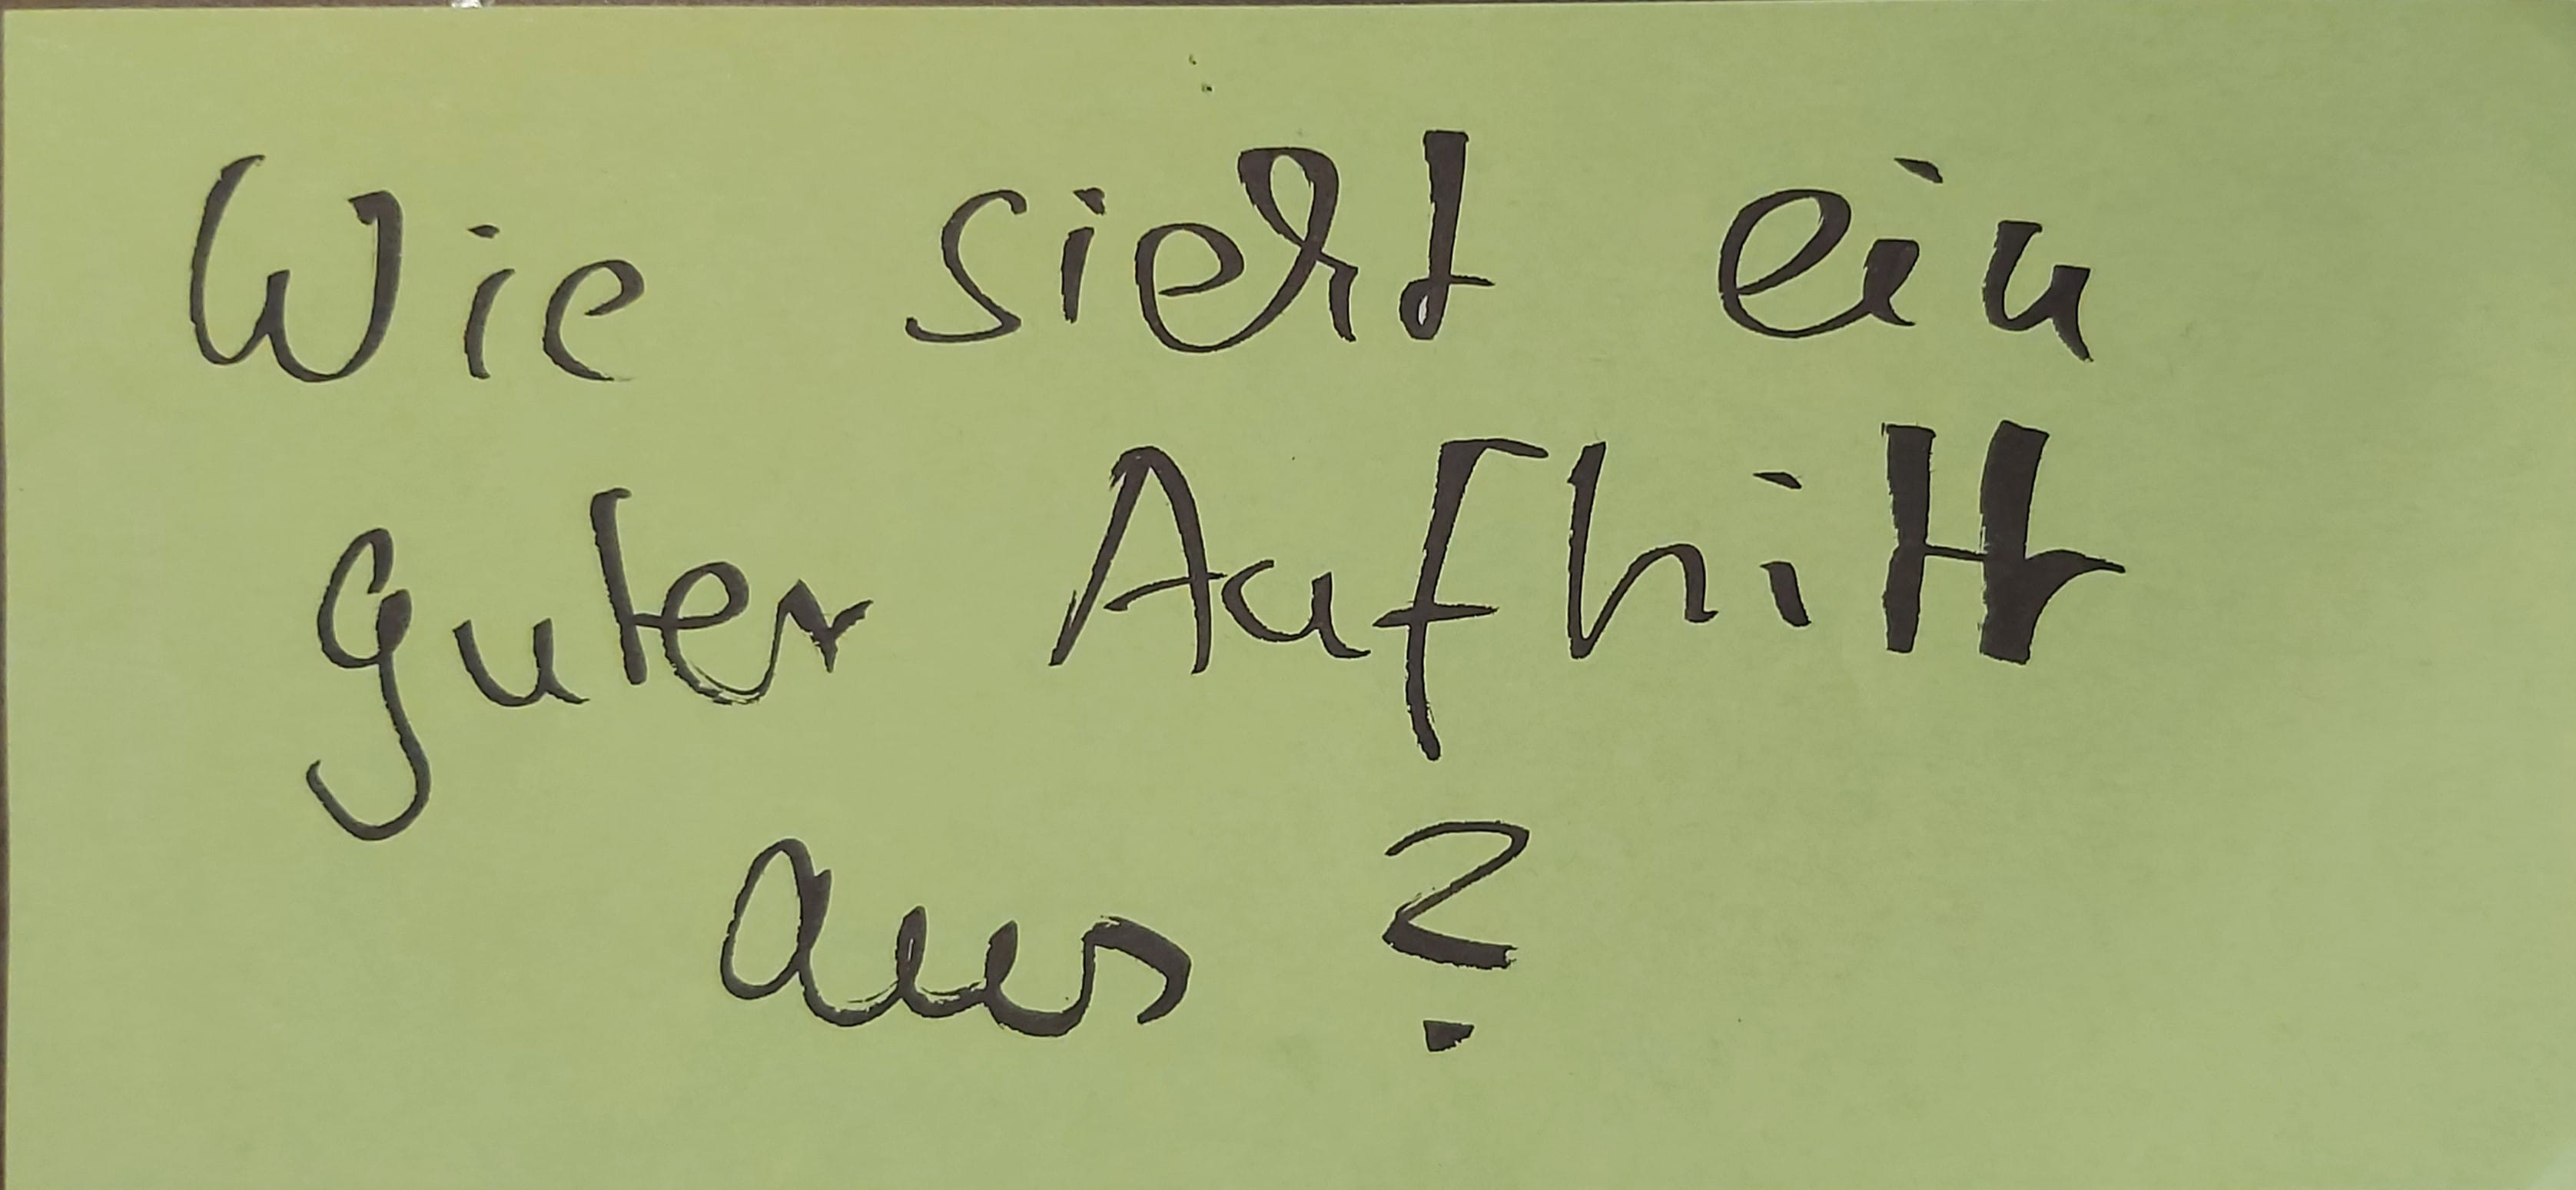 Wie sieht ein
guter Auftritt
aus?